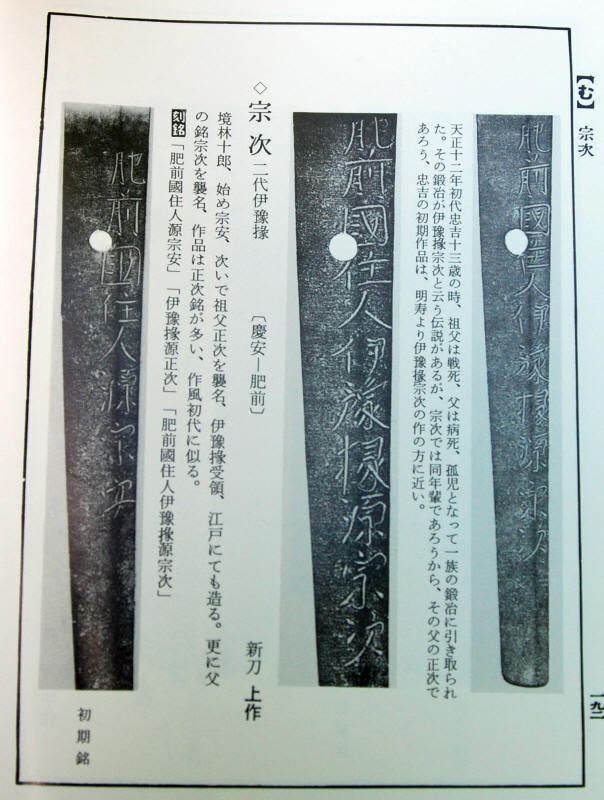 【む】 宗次
一九二
肥前國住人伊豫掾源宗次
天正十二年初代忠吉十三歳の時、祖父は戦死、父は病死、孤児となって一族の鍛冶に引き取られ
た。その鍛冶が伊豫掾宗次と云う伝説があるが、宗次では同年輩であろうから、その父の正次で
あろう、忠吉の初期作品は、明寿より伊豫掾宗次の作の方に近い。
肥前國住人伊豫掾源宗次
◇宗次 二代伊豫掾 〔慶安―肥前〕 新刀 上作
境林十郎、始め宗安、次いで祖父正次を襲名、伊豫掾受領、江戸にても造る。更に父
の銘宗次を襲名、作品は正次銘が多い、作風初代に似る。
刻銘「肥前國住人源宗安」「伊豫掾源正次」「肥前國住人伊豫掾源宗次」
肥前國住人源宗安
初期銘